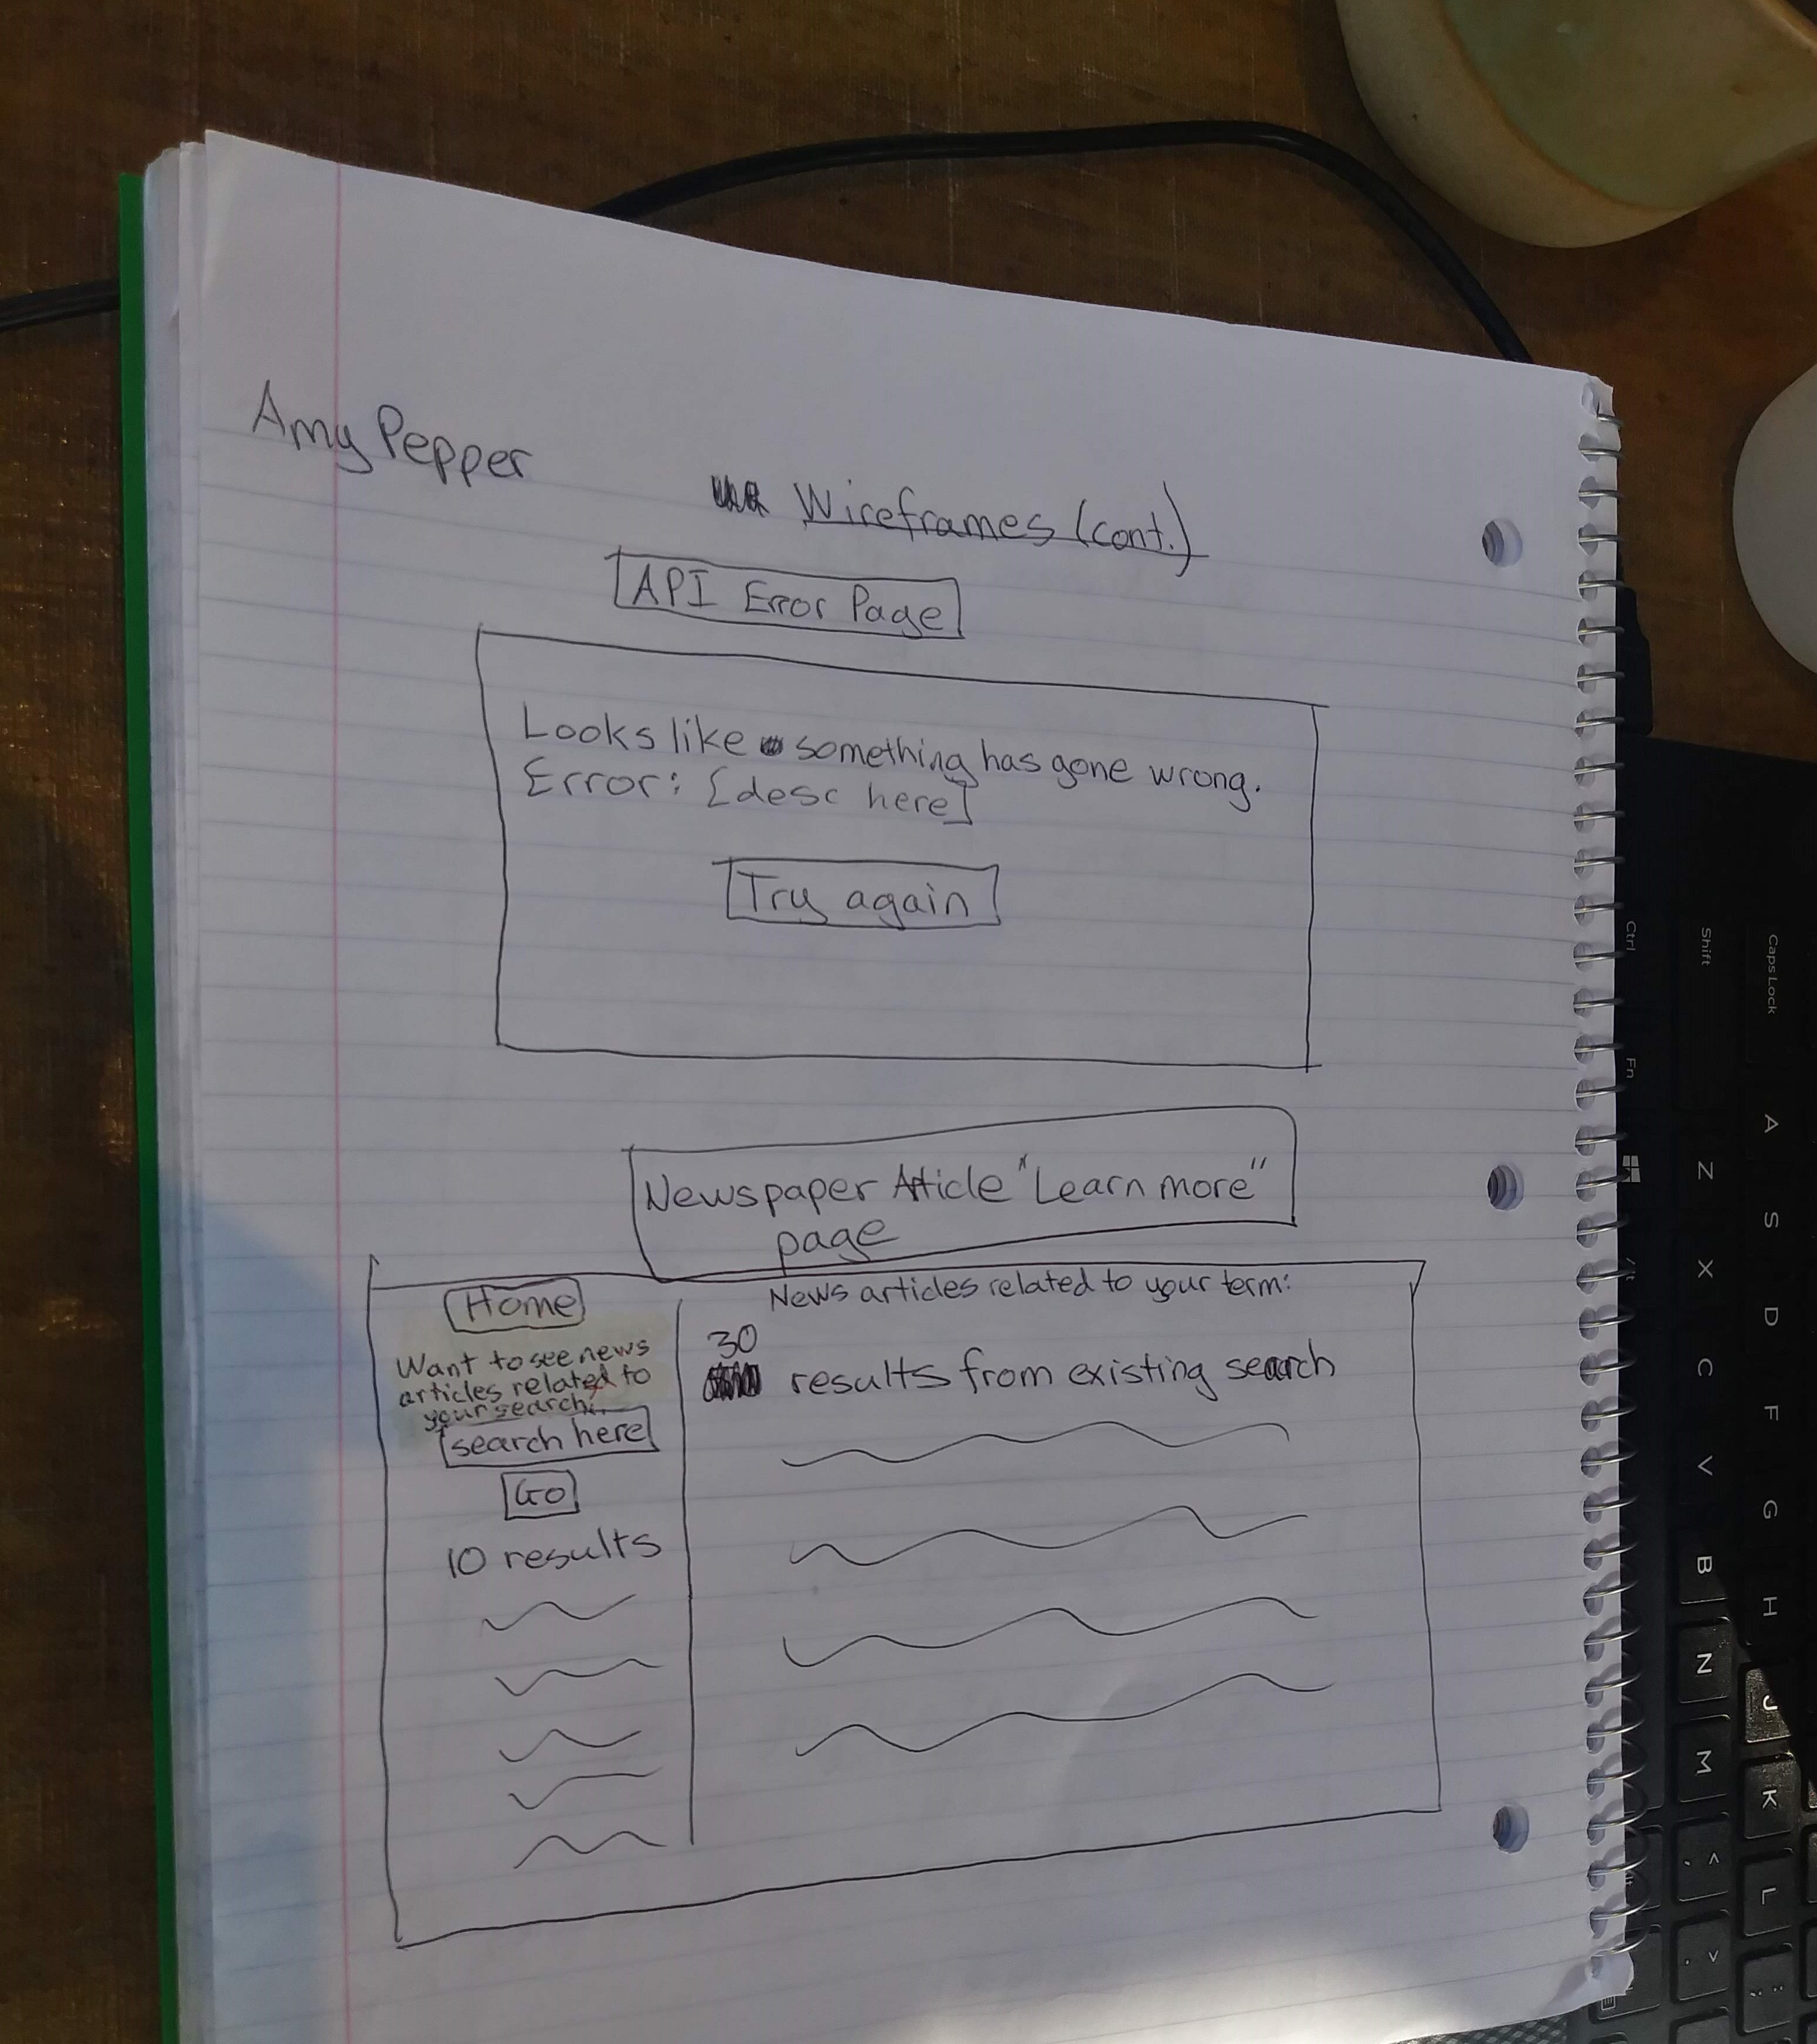 Amy Pepper
Wireframes (cont.)
API Error Page
Looks like something has gone wrong.
Error: [desc here]
Try again
Newspaper Article "Learn more"
page
Home
Want to see news
articles related to
your search.
search here
Go
10 results
News articles related to your term:
30
results from existing search
Ctrl
Fn
Shift
Z
X
C
V
B
N
M
<
,
>
.
Caps Lock
A
S
D
F
G
H
J
K
L
:
;